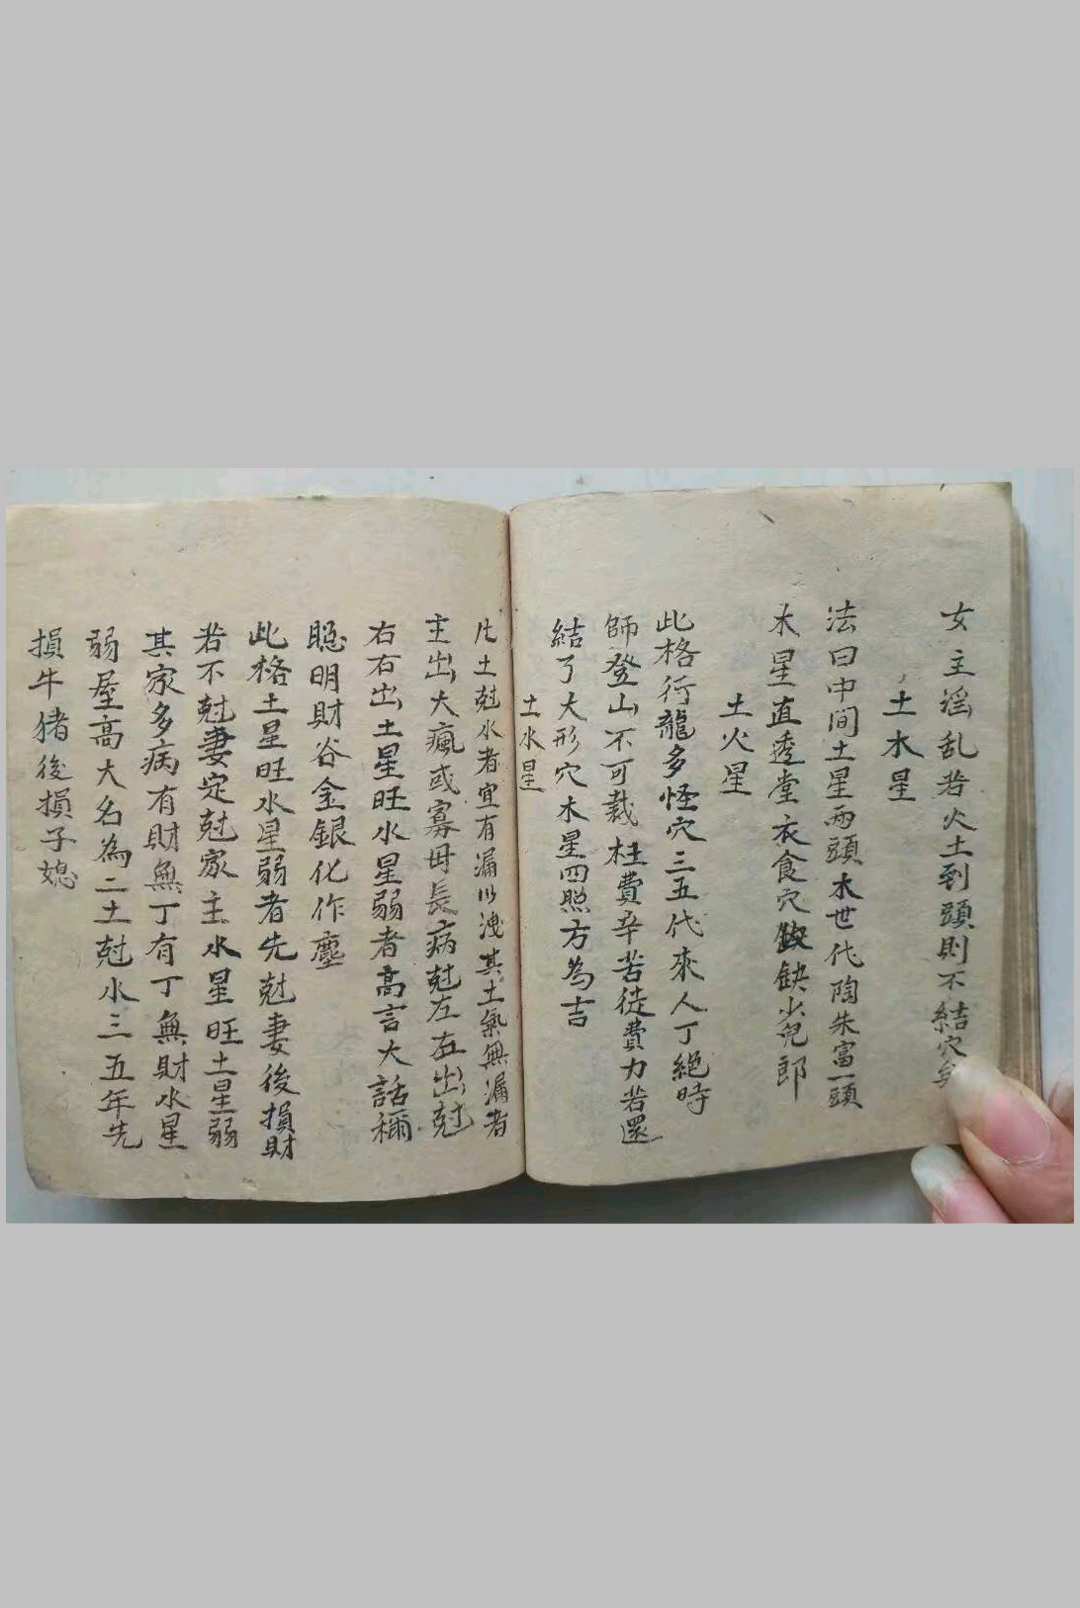 女主滛乱若火土到頭則不結穴矣
土木星
法曰中间土星両頭木世代陶朱富一頭
木星直透堂衣食穴缺少児郎
土火星
此格行龍多怪穴三五代來人丁絕時
師登山不可裁枉費辛苦徒費力若還
結了大形穴木星四照方為吉
土水星
凡土尅水者宜有漏以洩其土氣無漏者
主出大瘋或寡毋長病尅左左出尅
右右出土星旺水星弱者高言大話稱
聪明財谷金銀化作塵
此格土星旺水星弱者先尅妻後損財
若不尅妻定尅家主水星旺土星弱
其家多病有財無丁有丁無財水星
弱屋高大名為二土尅水三五年先
損牛猪後損子媳